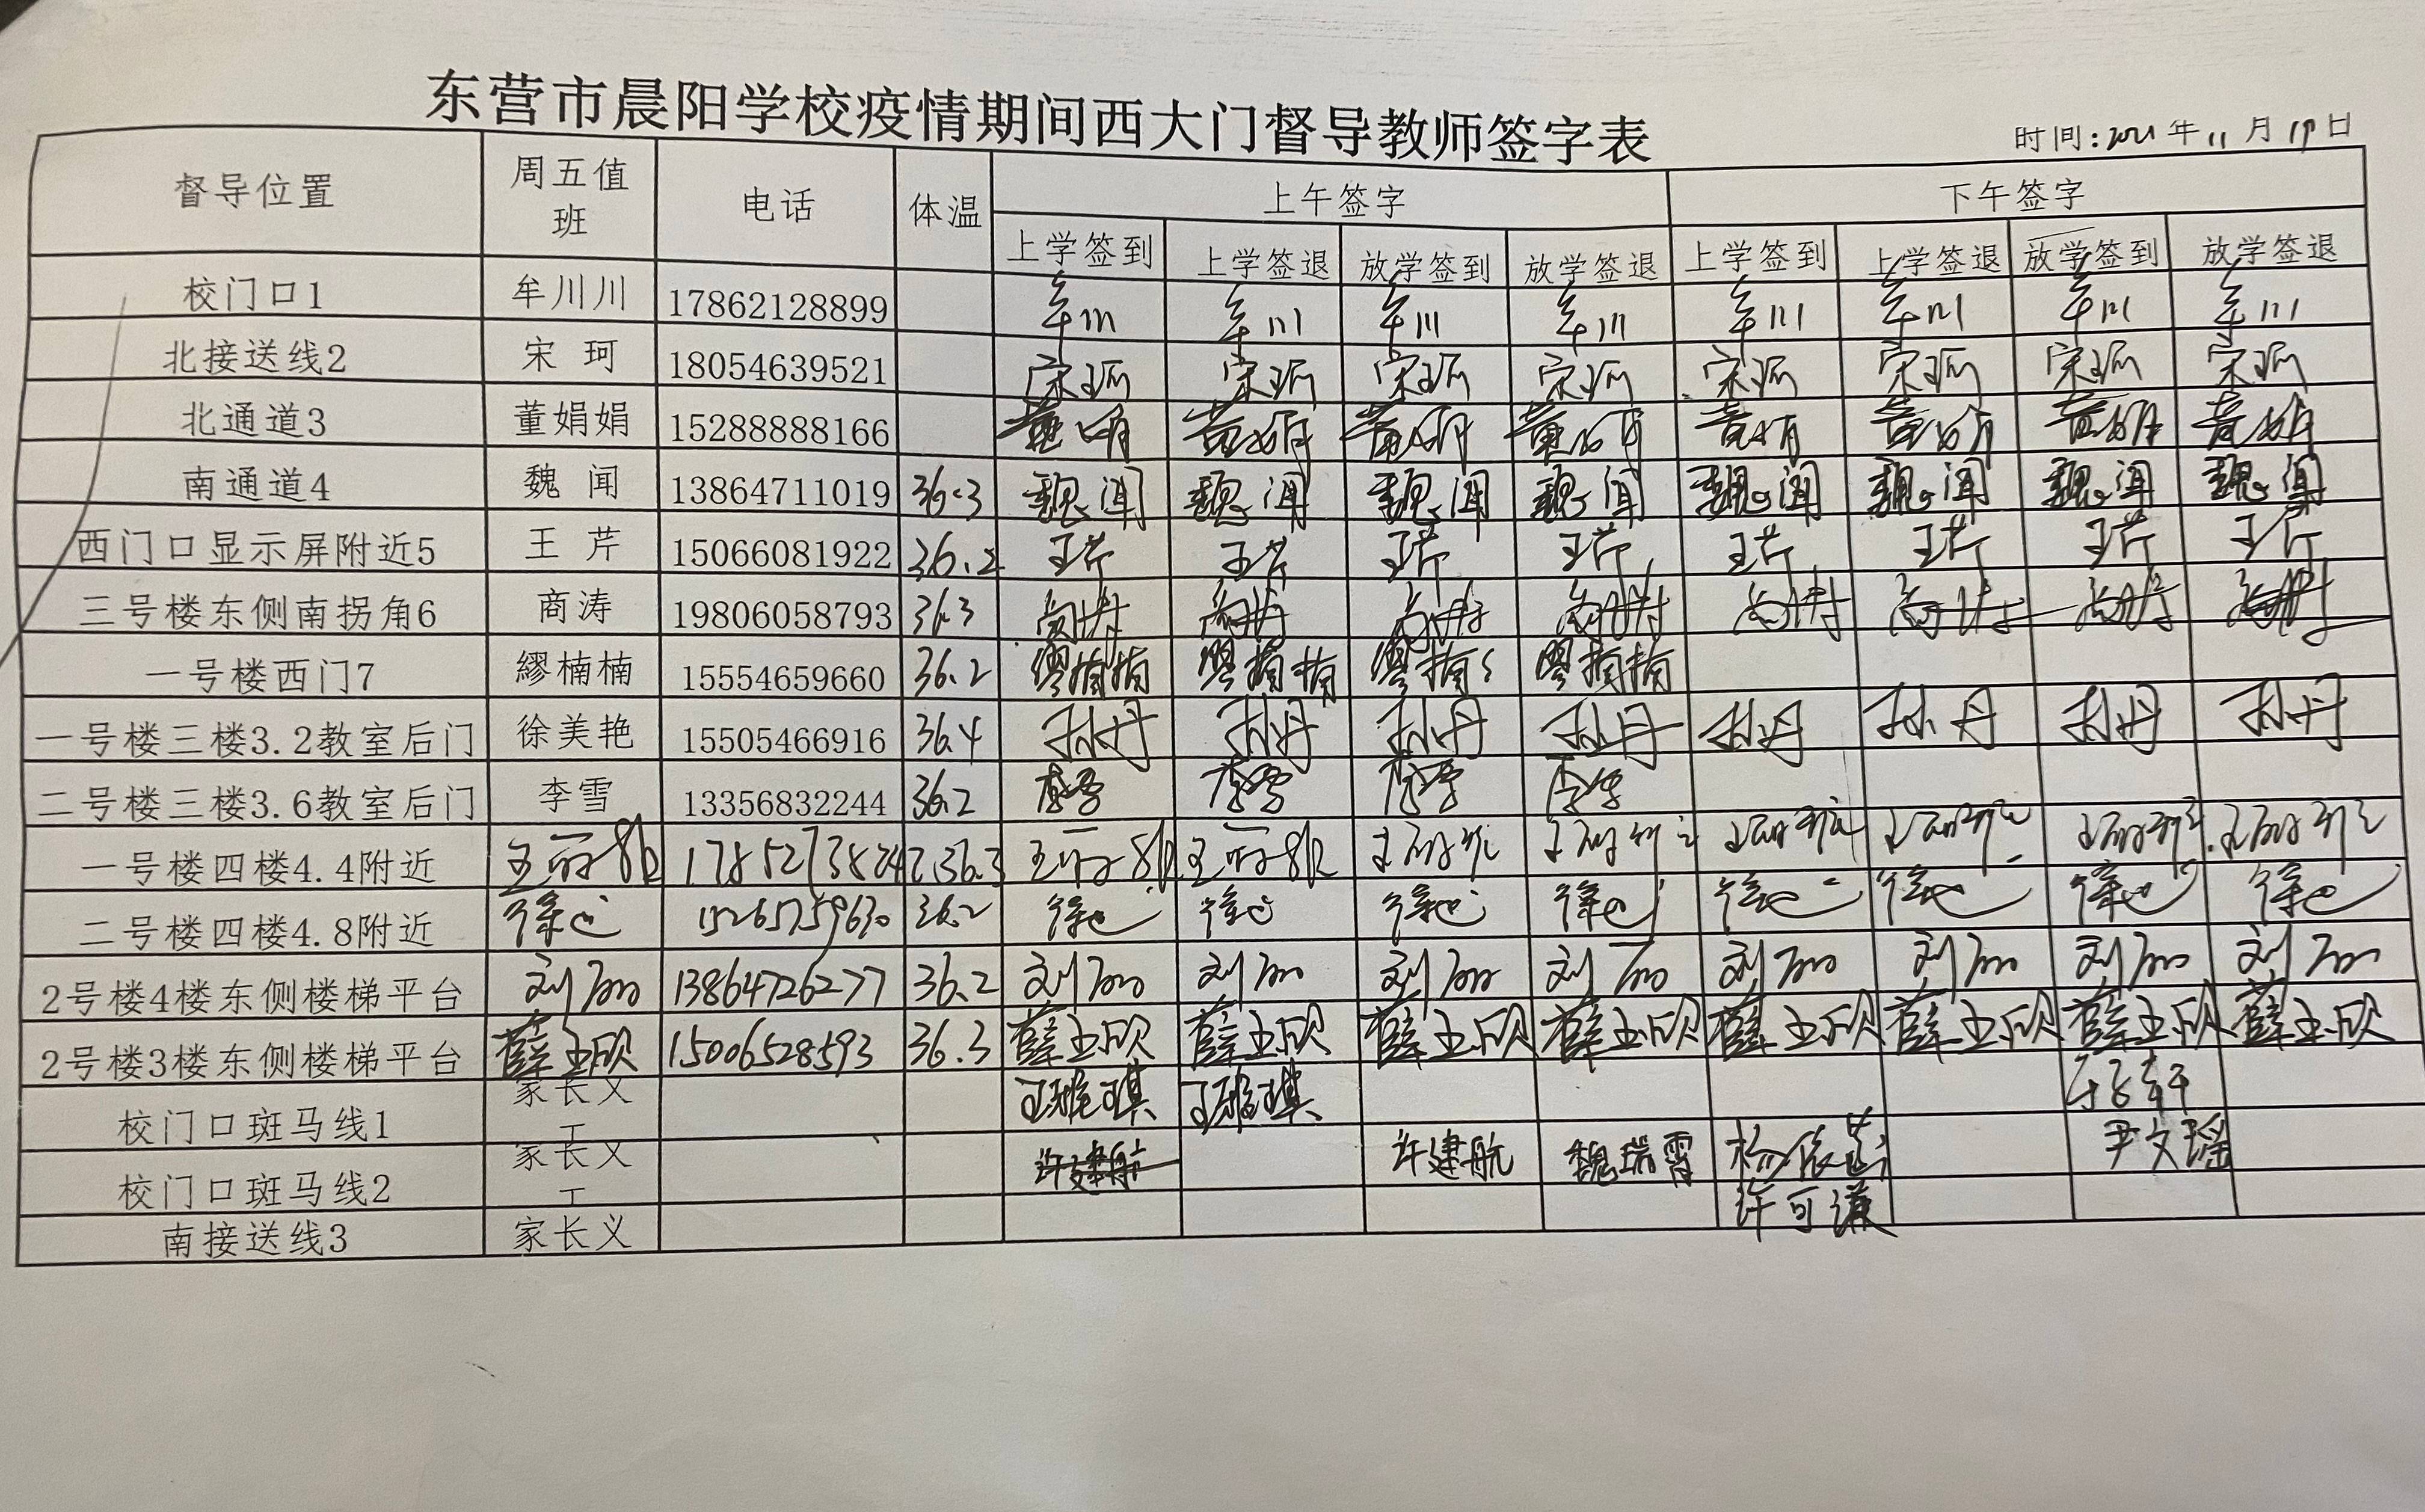 东营市晨阳学校疫情期间西大门督导教师签字表
时间:2021年11月19日
督导位置 周五值班 电话 体温 上午签字 下午签字
上学签到 上学签退 放学签到 放学签退 上学签到 上学签退 放学签到 放学签退
校门口1 牟川川 17862128899 牟川 牟川 牟川 牟川 牟川 牟川 牟川 牟川
北接送线2 宋 珂 18054639521 宋珂 宋珂 宋珂 宋珂 宋珂 宋珂 宋珂 宋珂
北通道3 董娟娟 15288888166
南通道4 魏 闻 13864711019 36.3 魏闻 魏闻 魏闻 魏闻 魏闻 魏闻 魏闻 魏闻
西门口显示屏附近5 王 芹 15066081922 36.2 王芹 王芹 王芹 王芹 王芹 王芹 王芹 王芹
三号楼东侧南拐角6 商涛 19806058793 36.3 商涛 商涛 商涛 商涛 商涛 商涛 商涛 商涛
一号楼西门7 繆楠楠 15554659660 36.2 繆楠楠 繆楠楠 繆楠 繆楠楠
一号楼三楼3.2教室后门 徐美艳 15505466916 36.4 孙丹 孙丹 孙丹 孙丹 孙丹 孙丹 孙丹 孙丹
二号楼三楼3.6教室后门 李雪 13356832244 36.2 李雪 李雪 李雪 李雪
一号楼四楼4.4附近 36.3
二号楼四楼4.8附近 15265759630 36.2
2号楼4楼东侧楼梯平台 刘丽 13864726277 36.2 刘丽 刘丽 刘丽 刘丽 刘丽 刘丽 刘丽 刘丽
2号楼3楼东侧楼梯平台 薛玉欣 15006528593 36.3 薛玉欣 薛玉欣 薛玉欣 薛玉欣 薛玉欣 薛玉欣 薛玉欣 薛玉欣
校门口斑马线1 家长义工 王雅琪 王雅琪
校门口斑马线2 家长义工 许建航 许建航 魏瑞霄 尹文瑶
南接送线3 家长义 许可谦